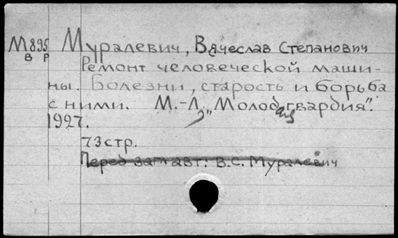 М895 Муралевич, Вячеслав Степанович
В Р Ремонт человеческой маши-
ны. Болезни, старость и борьба
с ними. М.-Л, "Молодая гвардия".
1927.
73 стр.
Перед загл авт: В.С. Муралевич